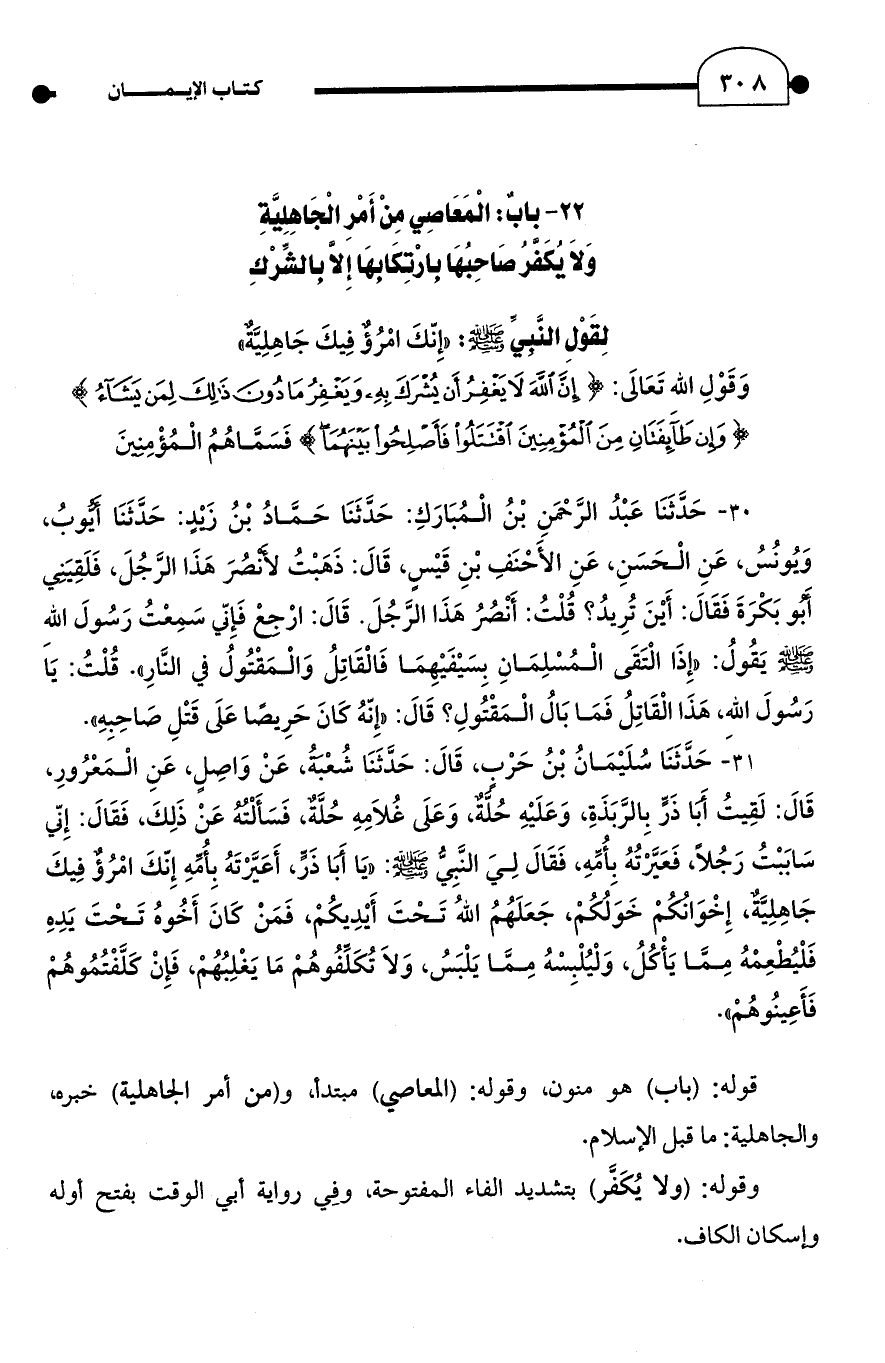 ٣٠٨ كتاب الإيمـــــان
٢٢- بابٌ: الْمَعَاصِي مِنْ أَمْرِ الْجَاهِلِيَّةِ
وَلاَ يُكَفَّرُ صَاحِبُهَا بِارْتِكَابِهَا إِلاَّ بِالشِّرْكِ
لِقَوْلِ النَّبِيِّ ﷺ: «إِنَّكَ امْرُؤٌ فِيكَ جَاهِلِيَّةٌ»
وَقَوْلِ الله تَعَالَى: ﴿ إِنَّ ٱللَّهَ لَا يَغْفِرُ أَن يُشْرَكَ بِهِۦ وَيَغْفِرُ مَا دُونَ ذَٰلِكَ لِمَن يَشَآءُ ﴾
﴿ وَإِن طَآئِفَتَانِ مِنَ ٱلْمُؤْمِنِينَ ٱقْتَتَلُوا۟ فَأَصْلِحُوا۟ بَيْنَهُمَا ﴾ فَسَمَّاهُمُ الْـمُؤْمِنِينَ
٣٠- حَدَّثَنَا عَبْدُ الرَّحْمَنِ بْنُ الْـمُبَارَكِ: حَدَّثَنَا حَمَّـادُ بْنُ زَيْدٍ: حَدَّثَنَا أَيُّوبُ،
وَيُونُسُ، عَنِ الْـحَسَنِ، عَنِ الأَحْنَفِ بْنِ قَيْسٍ، قَالَ: ذَهَبْتُ لأَنْصُرَ هَذَا الرَّجُلَ، فَلَقِيَنِي
أَبُو بَكْرَةَ فَقَالَ: أَيْنَ تُرِيدُ؟ قُلْتُ: أَنْصُرُ هَذَا الرَّجُلَ. قَالَ: ارْجِعْ فَإِنِّي سَمِعْتُ رَسُولَ الله
ﷺ يَقُولُ: «إِذَا الْتَقَى الْـمُسْلِمَـانِ بِسَيْفَيْهِمَـا فَالْقَاتِلُ وَالْـمَقْتُولُ فِي النَّارِ». قُلْتُ: يَا
رَسُولَ اللهِ، هَذَا الْقَاتِلُ فَمَـا بَالُ الْـمَقْتُولِ؟ قَالَ: «إِنَّهُ كَانَ حَرِيصًا عَلَى قَتْلِ صَاحِبِهِ».
٣١- حَدَّثَنَا سُلَيْمَـانُ بْنُ حَرْبٍ، قَالَ: حَدَّثَنَا شُعْبَةُ، عَنْ وَاصِلٍ، عَنِ الْـمَعْرُورِ،
قَالَ: لَقِيتُ أَبَا ذَرٍّ بِالرَّبَذَةِ، وَعَلَيْهِ حُلَّةٌ، وَعَلَى غُلاَمِهِ حُلَّةٌ، فَسَأَلْتُهُ عَنْ ذَلِكَ، فَقَالَ: إِنِّي
سَابَبْتُ رَجُلاً، فَعَيَّرْتُهُ بِأُمِّهِ، فَقَالَ لِيَ النَّبِيُّ ﷺ: «يَا أَبَا ذَرٍّ، أَعَيَّرْتَهُ بِأُمِّهِ إِنَّكَ امْرُؤٌ فِيكَ
جَاهِلِيَّةٌ، إِخْوَانُكُمْ خَوَلُكُمْ، جَعَلَهُمُ اللهُ تَـحْتَ أَيْدِيكُمْ، فَمَنْ كَانَ أَخُوهُ تَـحْتَ يَدِهِ
فَلْيُطْعِمْهُ مِـمَّـا يَأْكُلُ، وَلْيُلْبِسْهُ مِـمَّا يَلْبَسُ، وَلاَ تُكَلِّفُوهُمْ مَا يَغْلِبُهُمْ، فَإِنْ كَلَّفْتُمُوهُمْ
فَأَعِينُوهُمْ».
قوله: (باب) هو منون، وقوله: (المعاصي) مبتدأ، و(من أمر الجاهلية) خبره،
والجاهلية: ما قبل الإسلام.
وقوله: (ولا يُكَفَّر) بتشديد الفاء المفتوحة، وفي رواية أبي الوقت بفتح أوله
وإسكان الكاف.